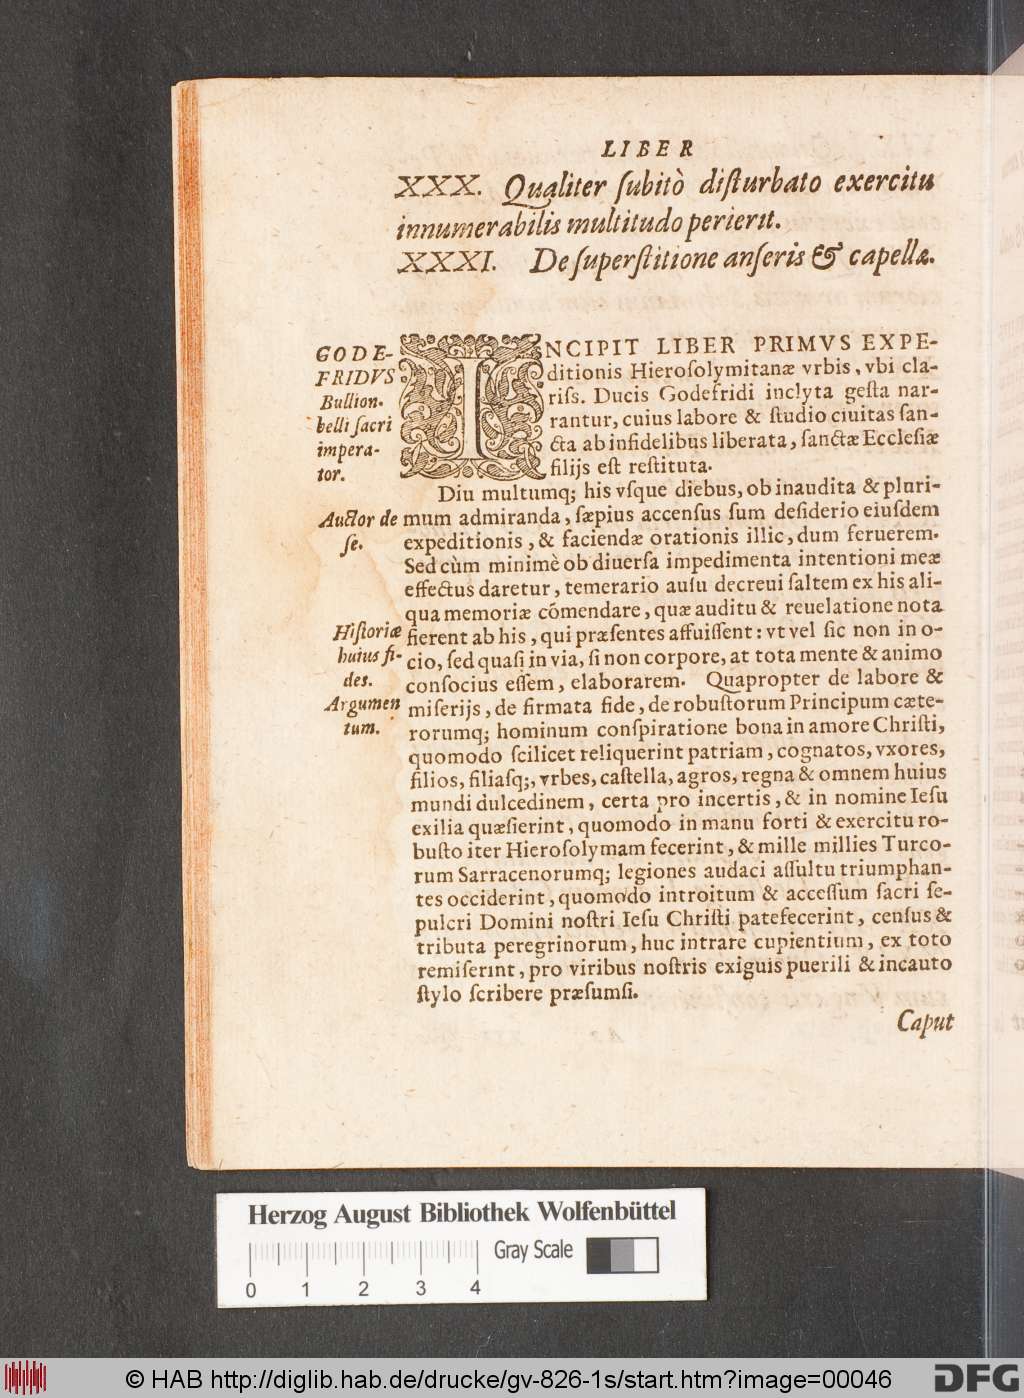 LIBER
XXX. Qualiter ſubitò diſturbato exercitu
innumerabilis multitudo perierit.
XXXI. De ſuperſtitione anſeris & capellæ.
GODE-
FRIDVS
Bullion.
belli ſacri
impera-
tor.
INCIPIT LIBER PRIMVS EXPE-
ditionis Hieroſolymitanæ vrbis, vbi cla-
riſſ. Ducis Godefridi inclyta geſta nar-
rantur, cuius labore & ſtudio ciuitas ſan-
cta ab infidelibus liberata, ſanctæ Eccleſiæ
filijs eſt reſtituta.
Diu multumq; his vſque diebus, ob inaudita & pluri-
Auctor de
ſe.
mum admiranda, ſæpius accenſus ſum deſiderio eiuſdem
expeditionis, & faciendæ orationis illic, dum feruerem.
Sed cùm minimè ob diuerſa impedimenta intentioni meæ
effectus daretur, temerario auſu decreui ſaltem ex his ali-
qua memoriæ cõmendare, quæ auditu & reuelatione nota
Hiſtoriæ
huius fi-
des.
fierent ab his, qui præſentes affuiſſent: vt vel ſic non in o-
cio, ſed quaſi in via, ſi non corpore, at tota mente & animo
conſocius eſſem, elaborarem. Quapropter de labore &
Argumen
tum.
miſerijs, de firmata fide, de robuſtorum Principum cæte-
rorumq; hominum conſpiratione bona in amore Chriſti,
quomodo ſcilicet reliquerint patriam, cognatos, vxores,
filios, filiaſq;, vrbes, caſtella, agros, regna & omnem huius
mundi dulcedinem, certa pro incertis, & in nomine Ieſu
exilia quæſierint, quomodo in manu forti & exercitu ro-
buſto iter Hieroſolymam fecerint, & mille millies Turco-
rum Sarracenorumq; legiones audaci aſſultu triumphan-
tes occiderint, quomodo introitum & acceſſum ſacri ſe-
pulcri Domini noſtri Ieſu Chriſti patefecerint, cenſus &
tributa peregrinorum, huc intrare cupientium, ex toto
remiſerint, pro viribus noſtris exiguis puerili & incauto
ſtylo ſcribere præſumſi.
Caput
Herzog August Bibliothek Wolfenbüttel
Gray Scale
0 1 2 3 4
© HAB http://diglib.hab.de/drucke/gv-826-1s/start.htm?image=00046
DFG